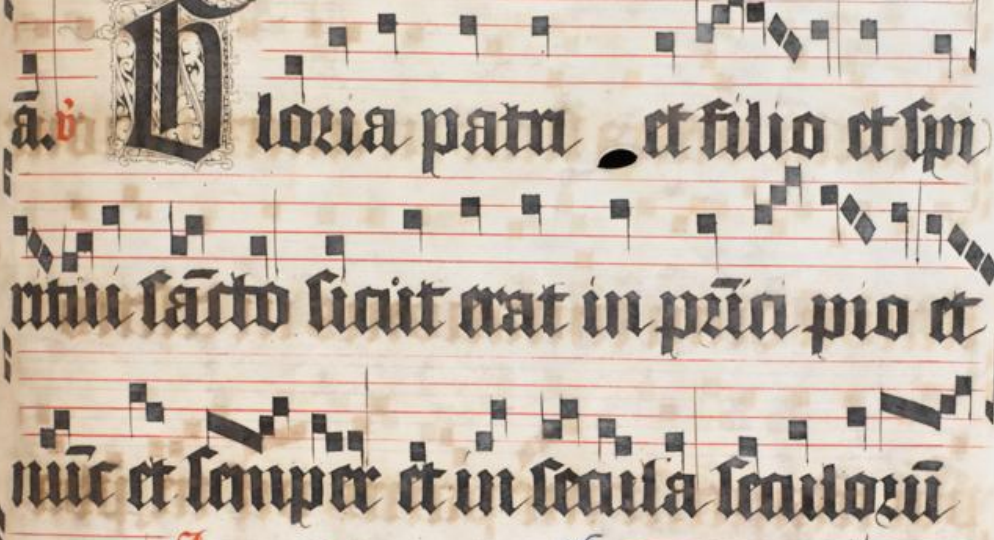 ā. v̇ Gloria patri et filio et spi
ritui sācto sicut erat in prīci pio et
nūc et semper et in secula seculorū